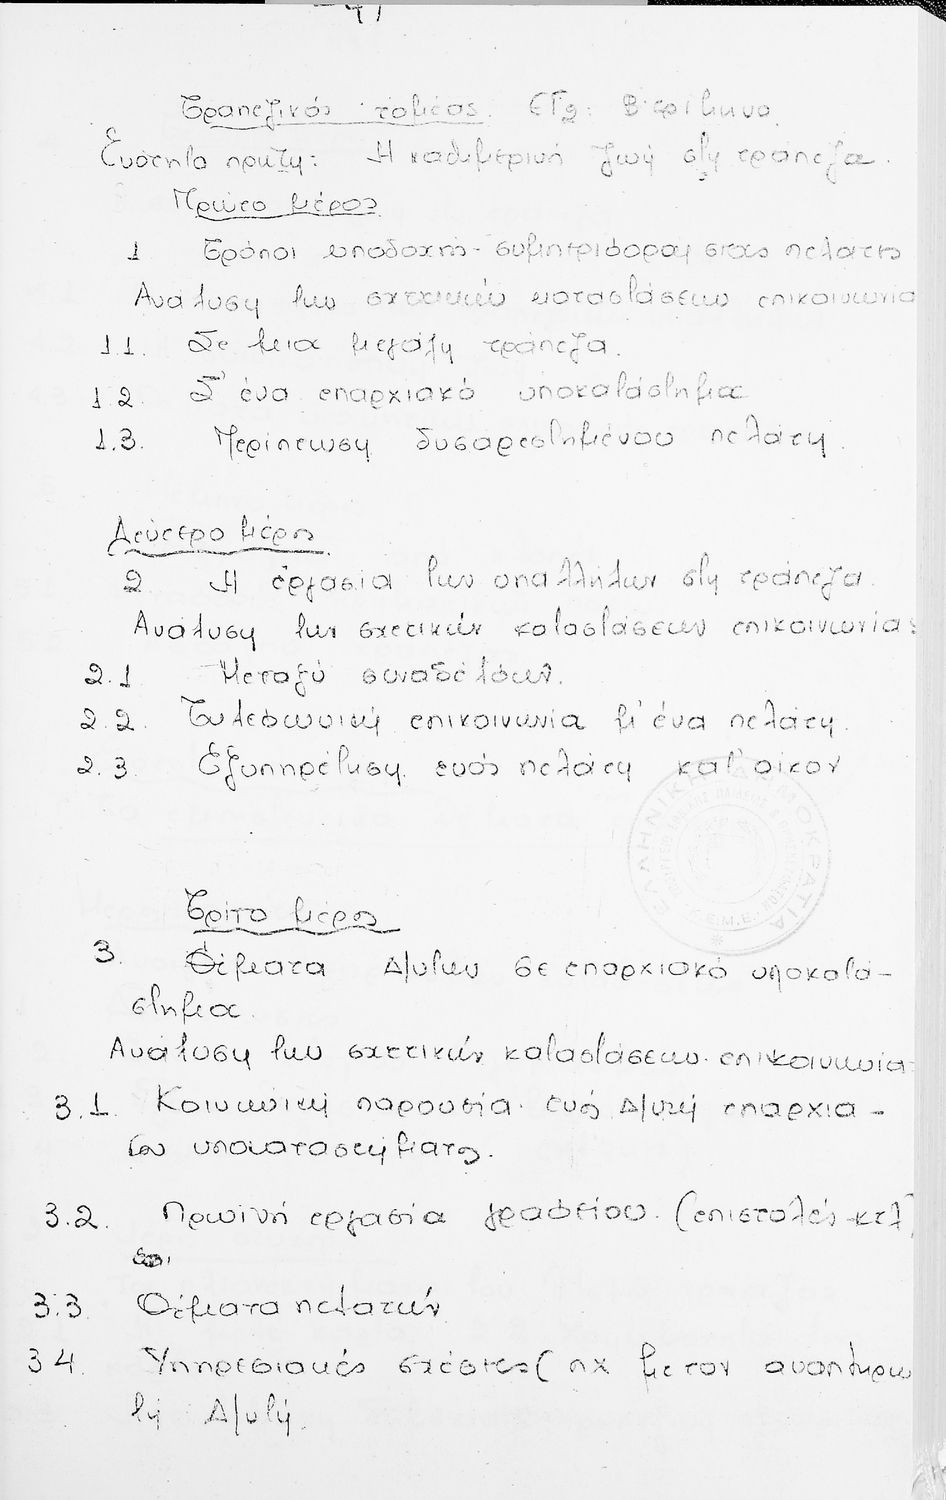 Τραπεζικός τομέας. Β' τρίμηνο
Ενότητα πρώτη: Η καθημερινή ζωή στη τράπεζα.
Πρώτο μέρος
1 Τρόποι υποδοχής - συμπεριφοράς στους πελάτες
Ανάλυση των σχετικών καταστάσεων επικοινωνία
1.1. Σε μεια μεγάλη τράπεζα.
1.2. Σ' ένα επαρχιακό υποκατάστημα
1.3. Περίπτωση δυσαρεστημένου πελάτη.
Δεύτερο μέρος
2 Η εργασία των υπαλλήλων στη τράπεζα.
Ανάλυση των σχετικών καταστάσεων επικοινωνίας
2.1 Μεταξύ συναδέλφων.
2.2. Τηλεφωνική επικοινωνία μ' ένα πελάτη.
2.3 Εξυπηρέτηση ενός πελάτη κατ' οίκον
ΕΛΛΗΝΙΚΗ ΔΗΜΟΚΡΑΤΙΑ
Τρίτο μέρος
3. Θέματα Δ/ντών σε επαρχιακό υποκατά-
στημα.
Ανάλυση των σχετικών καταστάσεων επικοινωνία
3.1. Κοινωνική παρουσία ενός Δ/ντή επαρχια-
κού υποκαταστήματος.
3.2. Πρωινή εργασία γραφείου. (επιστολές κτλ)
3.3. Θέματα πελατών
3.4. Υπηρεσιακές σχέσεις (πχ με τον αναπληρω
τή Δ/ντή.